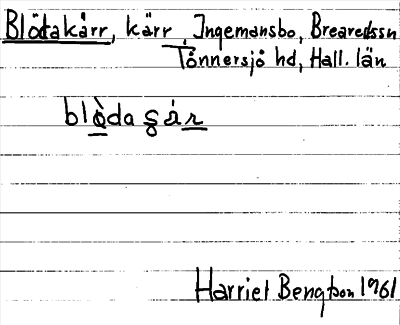 Blötakärr, kärr, Ingemansbo, Breareds sn
Tönnersjö hd, Hall. län
blò̱da s̥áṟ
Harriet Bengtson 1961